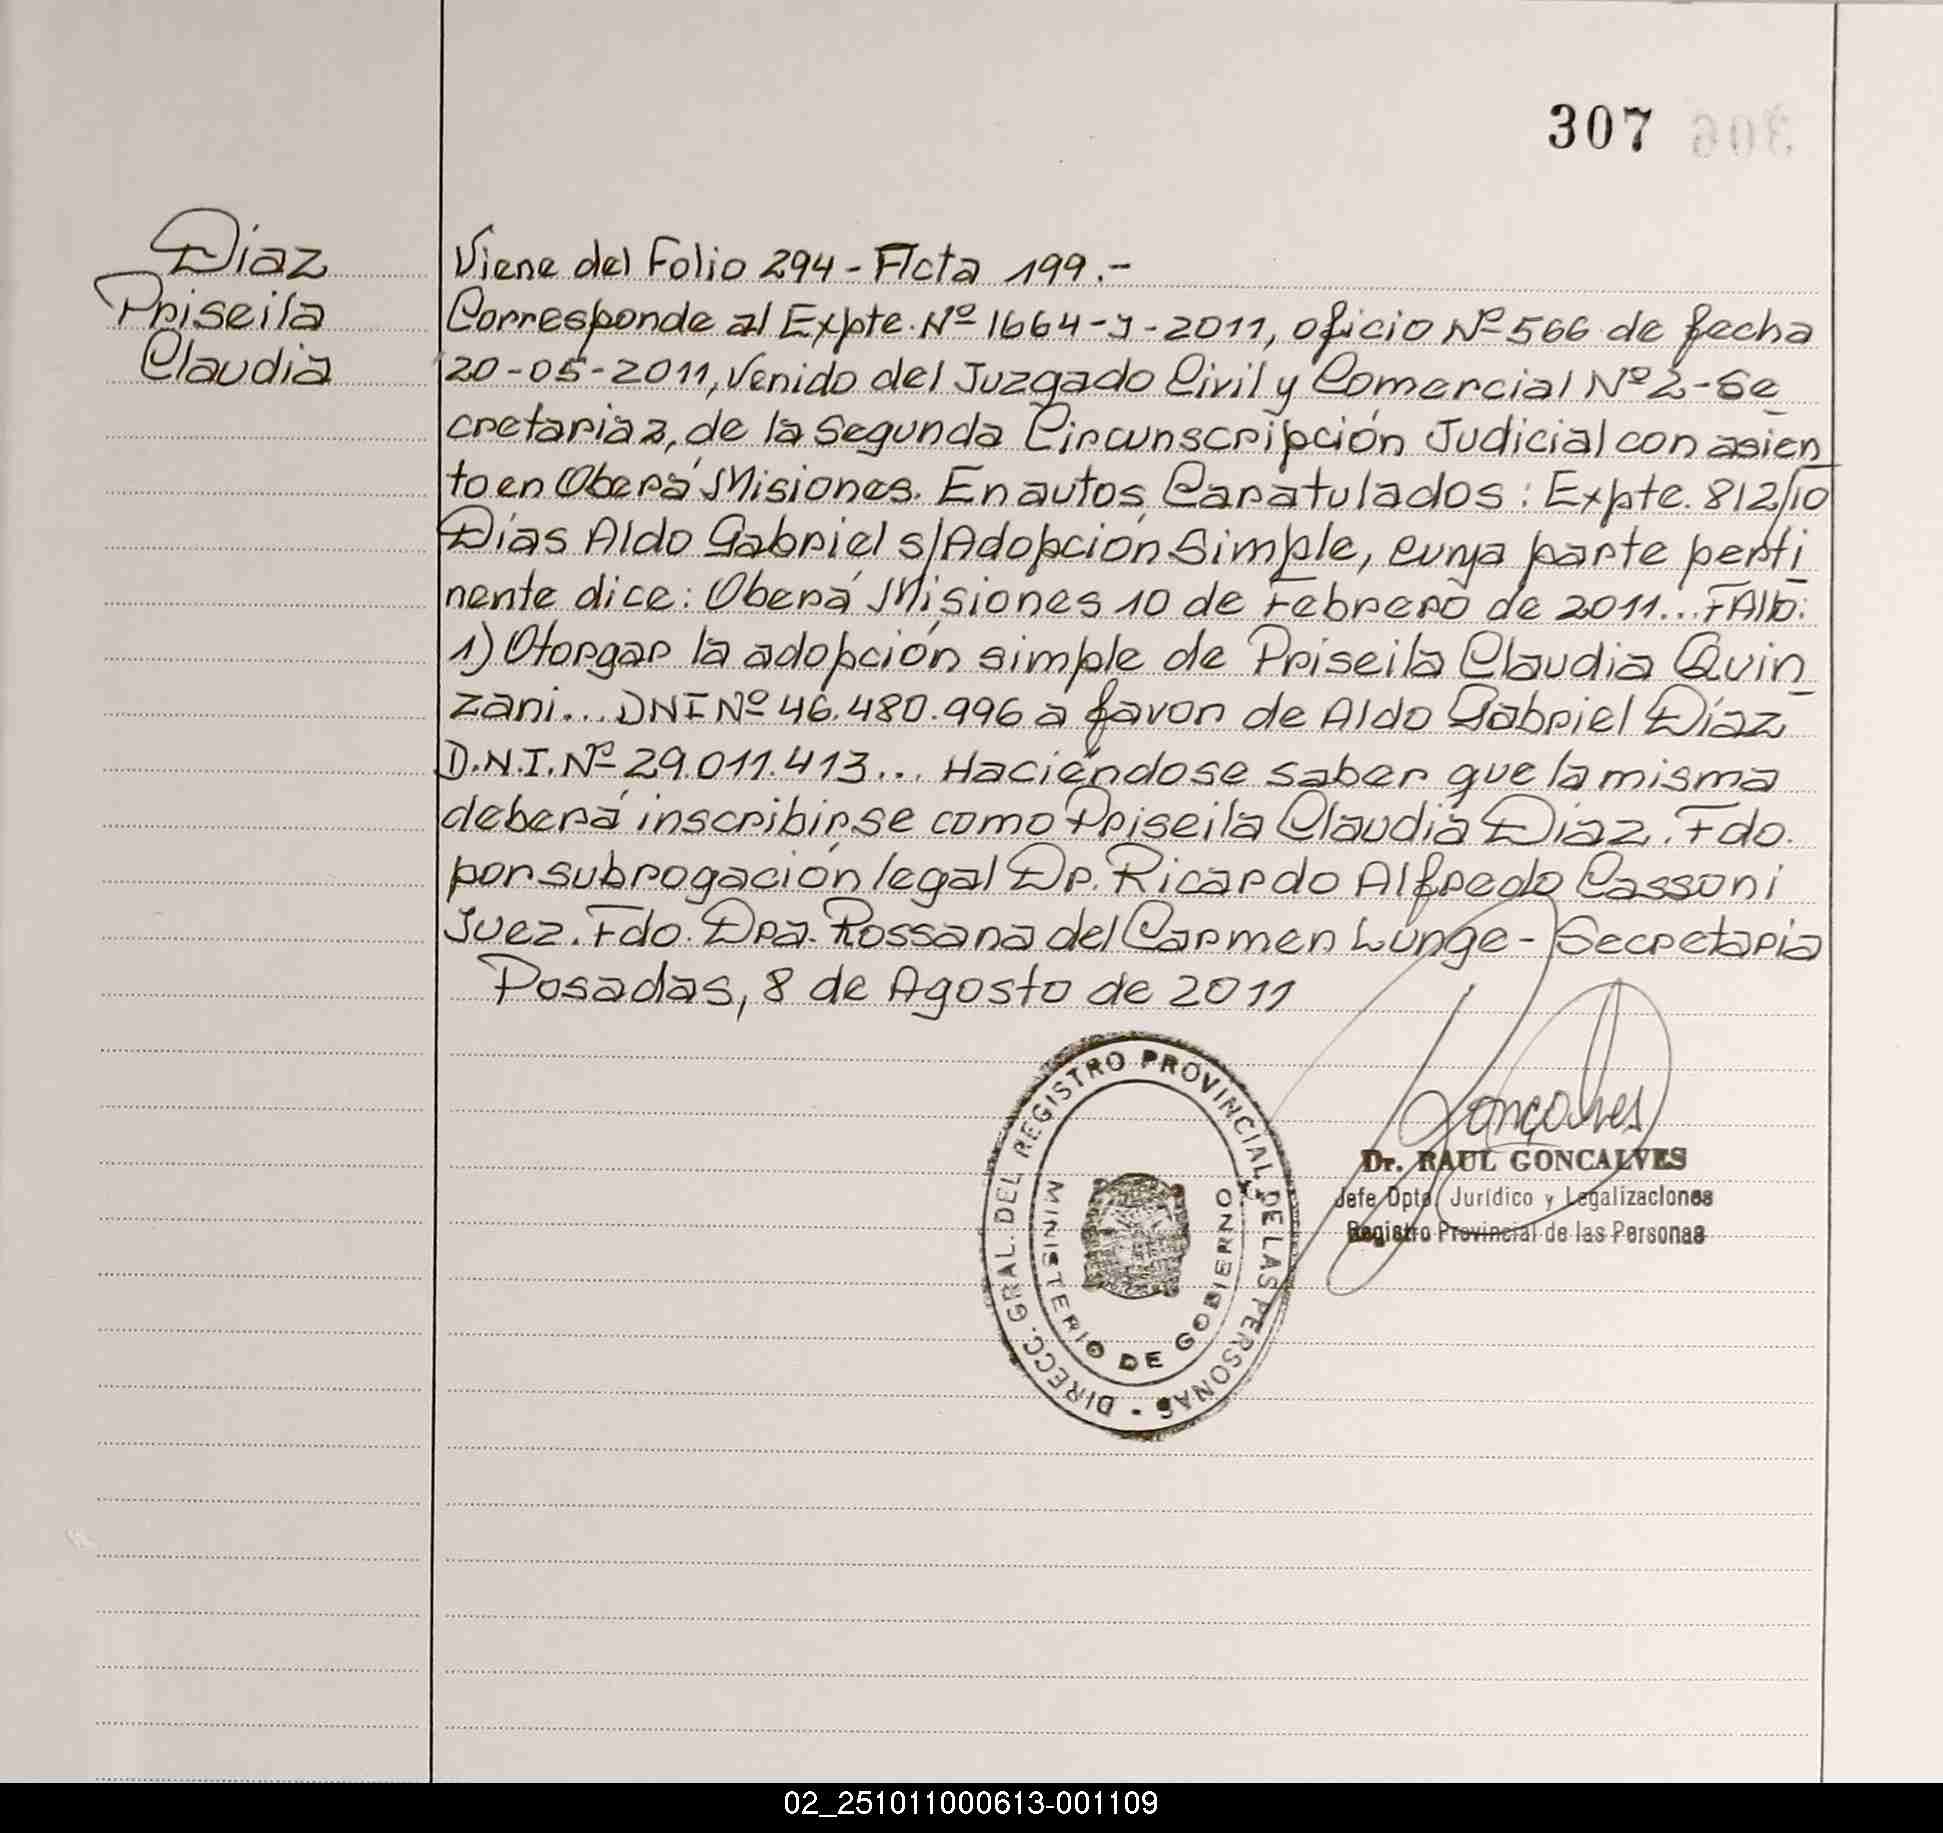 307
306
Díaz
Priseila
Claudia
Viene del Folio 294 - Acta 199.-
Corresponde al Expte. Nº 1664-J-2011, oficio Nº 566 de fecha
20-05-2011, Venido del Juzgado Civil y Comercial Nº 2-Se
cretaria 2, de la Segunda Circunscripción Judicial con asien
to en Oberá Misiones. En autos Caratulados: Expte. 812/10
Días Aldo Gabriel s/Adopción Simple, cuya parte perti
nente dice: Oberá Misiones 10 de Febrero de 2011... FAllo:
1) Otorgar la adopción simple de Priseila Claudia Quin
zani... DNI Nº 46.480.996 a favor de Aldo Gabriel Díaz
D.N.I. Nº 29.011.413... Haciéndose saber que la misma
deberá inscribirse como Priseila Claudia Díaz. Fdo.
por subrogación legal Dr. Ricardo Alfredo Cassoni
Juez. Fdo. Dra. Rossana del Carmen Lunge - Secretaria
Posadas, 8 de Agosto de 2011
DIRECC. GRAL. DEL REGISTRO PROVINCIAL DE LAS PERSONAS -
MINISTERIO DE GOBIERNO
Gonçalves
Dr. RAUL GONCALVES
Jefe Dpto. Jurídico y Legalizaciones
Registro Provincial de las Personas
02_251011000613-001109